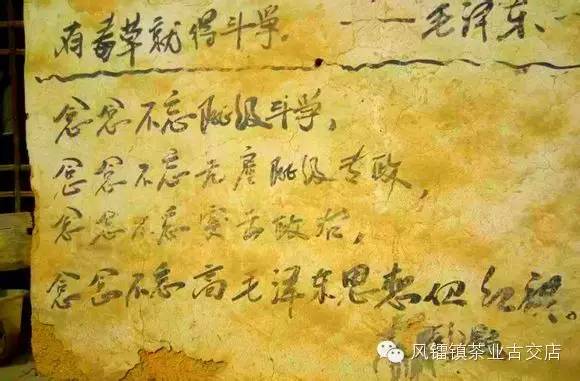 有毒草就得斗争。
——毛泽东
念念不忘阶级斗争,
念念不忘无产阶级专政,
念念不忘突出政治,
念念不忘高毛泽东思想的红旗。
风镭镇茶业古交店